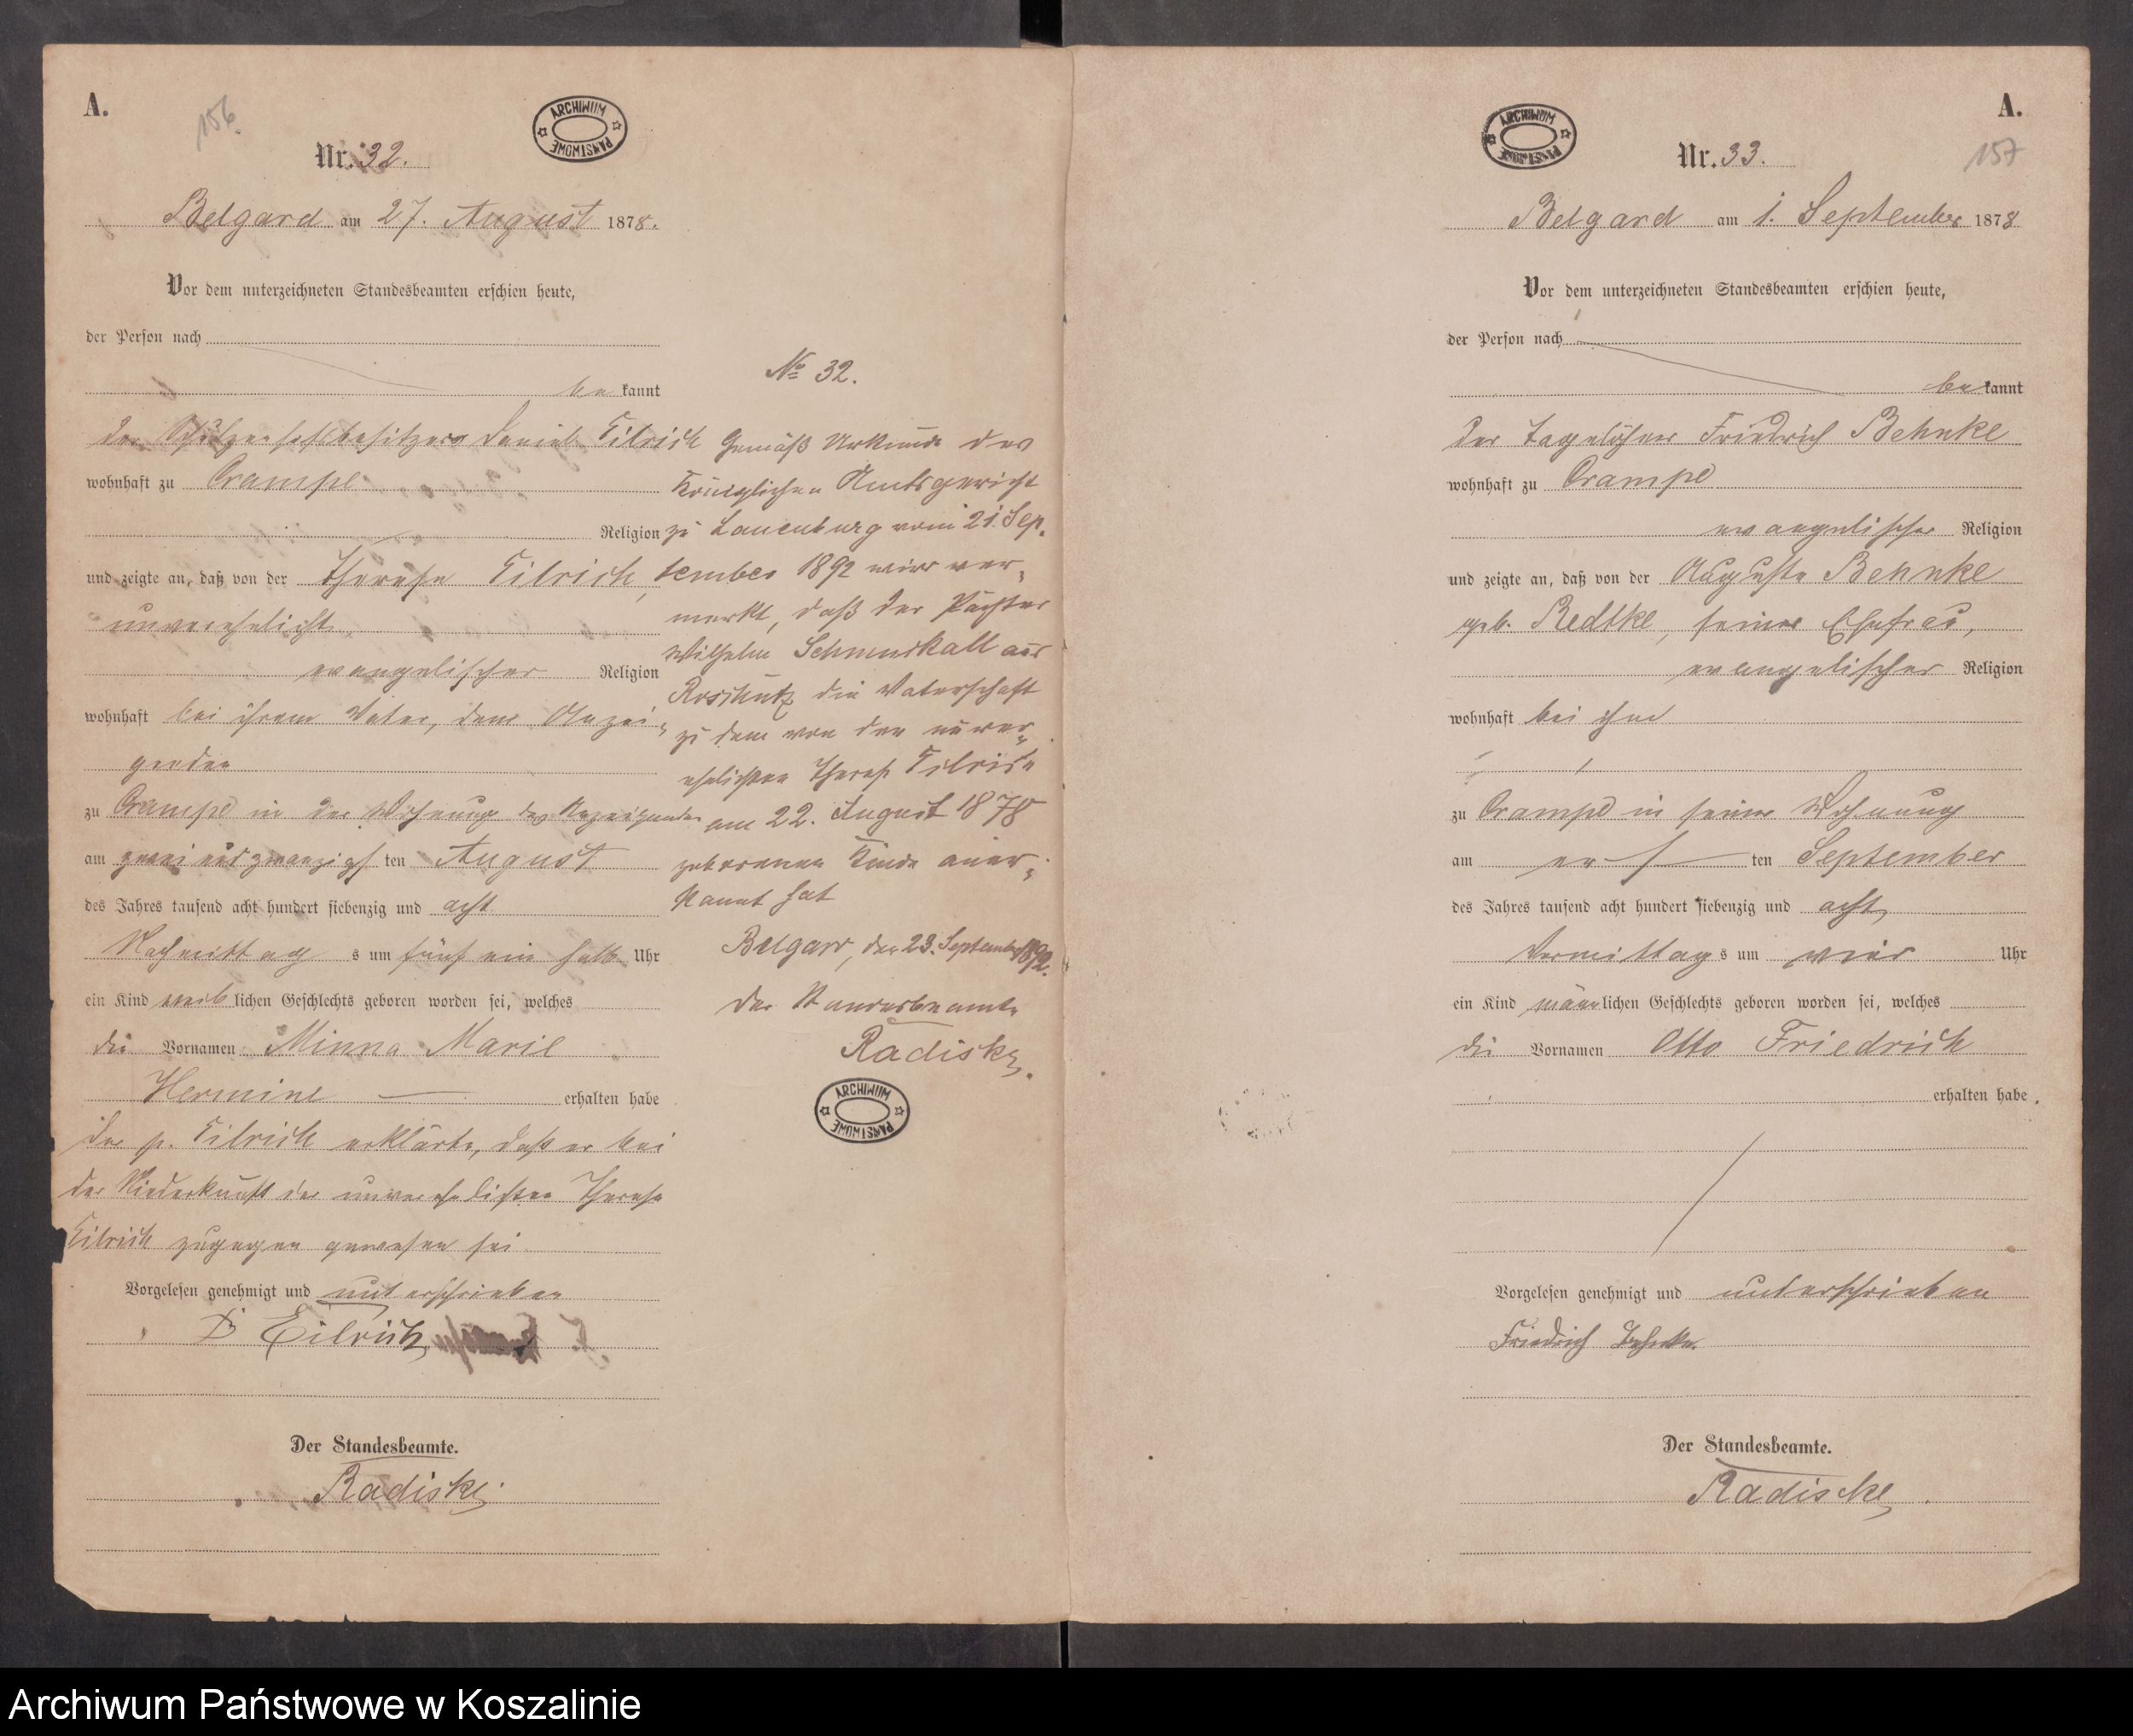 A.
156.
ARCHIWUM PAŃSTWOWE
Nr. 32.
Belgard am 27. August 1878.
Vor dem unterzeichneten Standesbeamten erschien heute,
der Person nach
be kannt
der Schulzenhofbesitzer Daniel Eilrich
wohnhaft zu Crampe
Religion
und zeigte an, daß von der Therese Eilrich,
unverehelicht,
evangelischer Religion
wohnhaft bei ihrem Vater, dem Anzei-
genden
zu Crampe in der Wohnung des Anzeigenden
am zwei und zwanzigs ten August
des Jahres tausend acht hundert siebenzig und acht
Nachmittag s um fünf ein halb Uhr
ein Kind weib lichen Geschlechts geboren worden sei, welches
die Vornamen Minna Marie
Hermine erhalten habe
Der p. Eilrich erklärte, daß er bei
der Niederkunft der unverehelichten Therese
Eilrich zugegen gewesen sei.
Vorgelesen genehmigt und unterschrieben
D Eilrich
Der Standesbeamte.
Radiske.
No 32.
Gemäß Urkunde des
Königlichen Amtsgericht
zu Lauenburg vom 21. Sep-
tember 1892 wird ver-
merkt, daß der Pächter
Wilhelm aus
die Vaterschaft
zu dem von der unver-
ehelichten Therese Eilrich
am 22. August 1878
geborenen Kinde aner-
kannt hat
Belgard, den 23. September 1892.
Der Standesbeamte
Radiske.
ARCHIWUM PAŃSTWOWE
ARCHIWUM PAŃSTWOWE
A.
157
Nr. 33.
Belgard am 1. September 1878
Vor dem unterzeichneten Standesbeamten erschien heute,
der Person nach
be kannt
der Tagelöhner Friedrich Behnke
wohnhaft zu Crampe
evangelischer Religion
und zeigte an, daß von der Auguste Behnke
geb. Redtke, seiner Ehefrau,
evangelischer Religion
wohnhaft bei ihm
zu Crampe in seiner Wohnung
am ers ten September
des Jahres tausend acht hundert siebenzig und acht
Vormittag s um vier Uhr
ein Kind männ lichen Geschlechts geboren worden sei, welches
die Vornamen Otto Friedrich
erhalten habe.
Vorgelesen genehmigt und unterschrieben
Friedrich Behnke.
Der Standesbeamte.
Radiske.
Archiwum Państwowe w Koszalinie